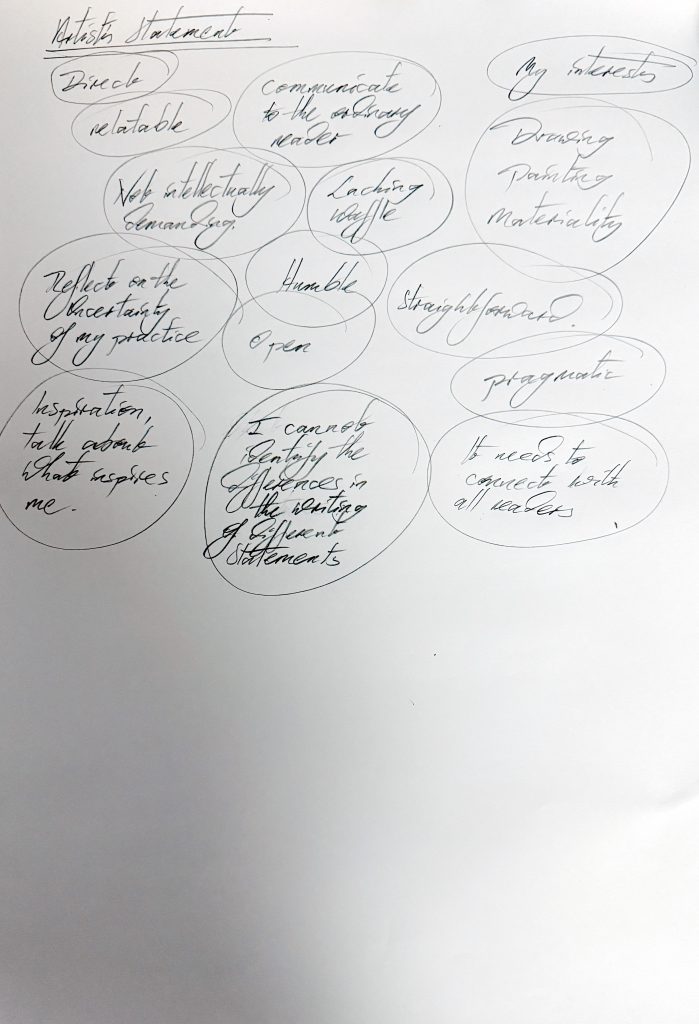 Artist's Statement
Direct
relatable
Communicate
to the ordinary
reader
My interests
Drawing
Painting
Materiality
Not intellectually
demanding.
Lacking
Waffle
Reflect on the
Uncertainty
of my practice
Humble
Open
Straightforward.
pragmatic
Inspiration,
talk about
what inspires
me.
I cannot
identify the
differences in
the writing
of different
Statements
It needs to
connect with
all readers